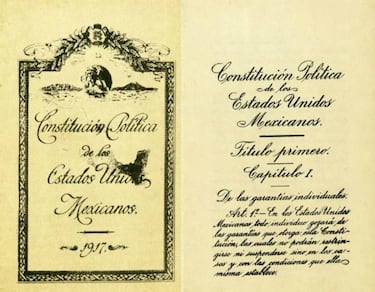 Constitución Política
de los
Estados Unidos
Mexicanos.
1917.
Constitución Política
de los
Estados Unidos
Mexicanos.
Título primero.
Capítulo I.
De las garantías individuales.
Art. 1º— En los Estados Unidos
Mexicanos todo individuo gozará de
las garantías que otorga esta Consti-
tución, las cuales no podrán restrin-
girse ni suspenderse sino en los ca-
sos y en las condiciones que ella
misma establece.